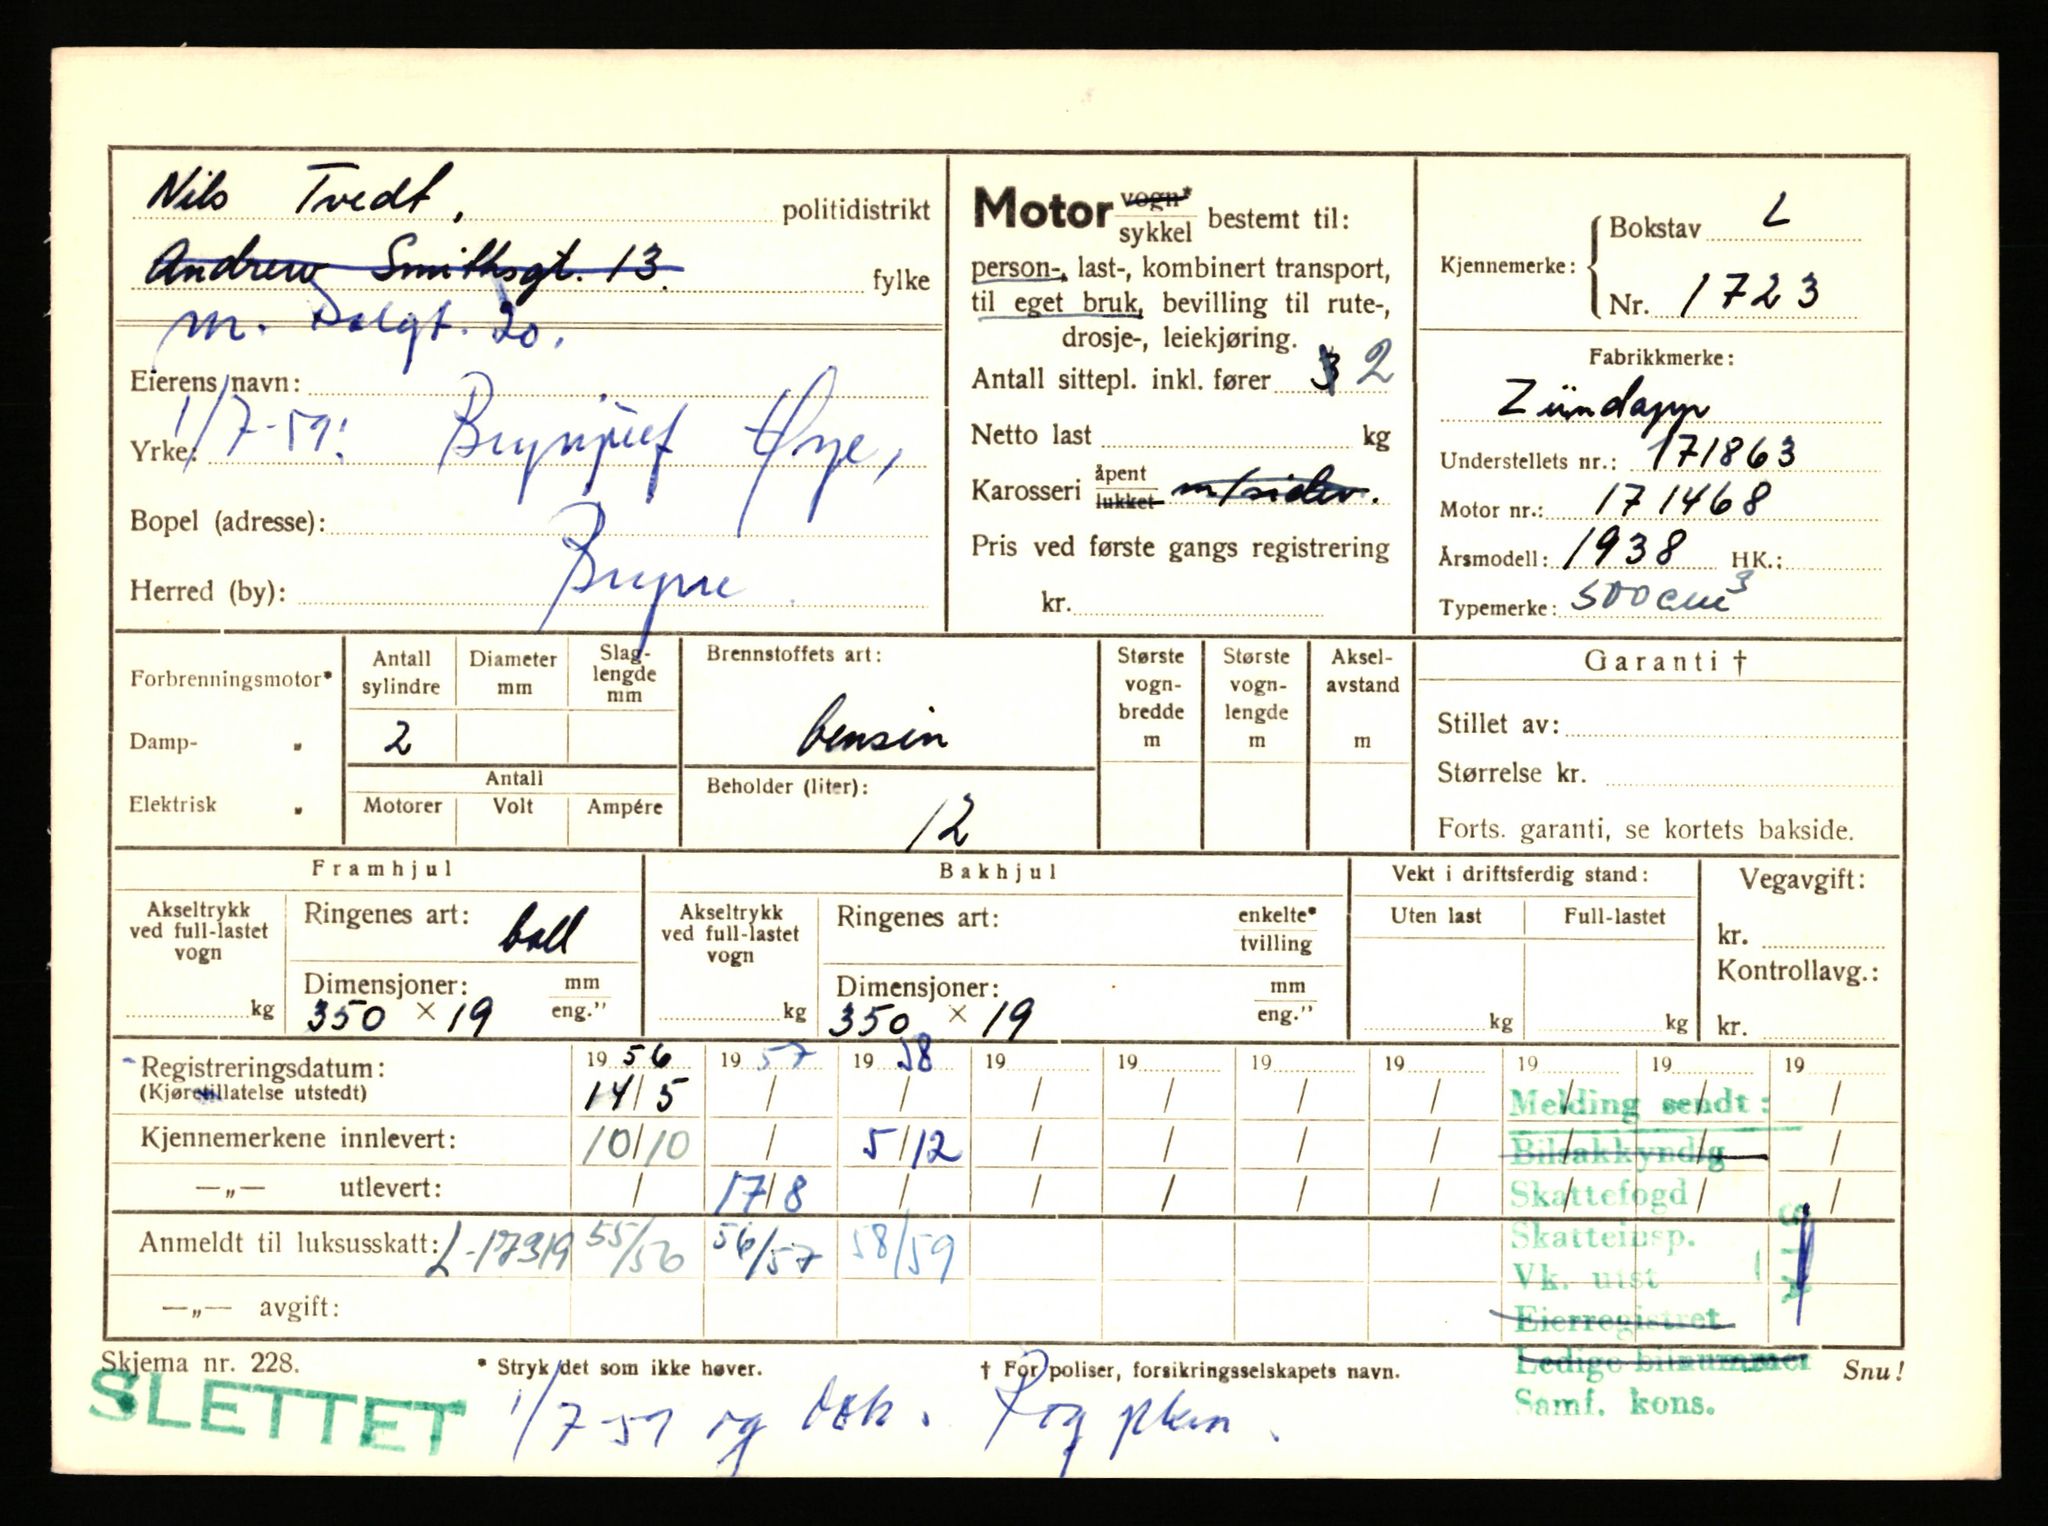 Nils Tvedt, politidistrikt
Andrew Smithsgt. 13. fylke
m. Dalgt. 20.
Eierens navn:
1/7-59:
Yrke: Øye,
Bopel (adresse):
Herred (by): Bryne
Motor vogn* sykkel bestemt til:
person-, last-, kombinert transport,
til eget bruk, bevilling til rute-,
drosje-, leiekjøring.
Antall sittepl. inkl. fører 3 2
Netto last kg
Karosseri åpent lukket m/sidev.
Pris ved første gangs registrering
kr.
Kjennemerke: Bokstav L
Nr. 1723
Fabrikkmerke:
Zündapp
Understellets nr.: 171863
Motor nr.: 171468
Årsmodell: 1938 HK.:
Typemerke: 500 cm³
Forbrenningsmotor*
Damp- „
Elektrisk „
Antall sylindre
Diameter mm
Slag-lengde mm
2
Antall
Motorer Volt Ampére
Brennstoffets art:
bensin
Beholder (liter):
12
Største vogn-bredde m
Største vogn-lengde m
Aksel-avstand m
Garanti †
Stillet av:
Størrelse kr.
Forts. garanti, se kortets bakside.
Framhjul
Akseltrykk ved full-lastet vogn
kg
Ringenes art: ball
Dimensjoner: mm eng."
350 × 19
Bakhjul
Akseltrykk ved full-lastet vogn
kg
Ringenes art: enkelte* tvilling
Dimensjoner: mm eng."
350 × 19
Vekt i driftsferdig stand:
Uten last Full-lastet
kg kg
Vegavgift:
kr.
Kontrollavg.:
kr.
Registreringsdatum: 19 56 19 57 19 58 19 19 19 19 19 19 19
(Kjøretillatelse utstedt) 14/5 / / / / / / / / /
Kjennemerkene innlevert: 10/10 / 5/12 / / / / / / /
—„— utlevert: / 17/8 / / / / / / / /
Anmeldt til luksusskatt: L-17319 55/56 56/57 58/59
—„— avgift:
Melding sendt:
Bilsakkyndig
Skattefogd
Skatteinsp.
Vk. utst
Eierregistret
Ledige bilnummer
Samf. kons.
Skjema nr. 228.
* Stryk det som ikke høver.
† For poliser, forsikringsselskapets navn.
Snu!
SLETTET
1/7-59 og